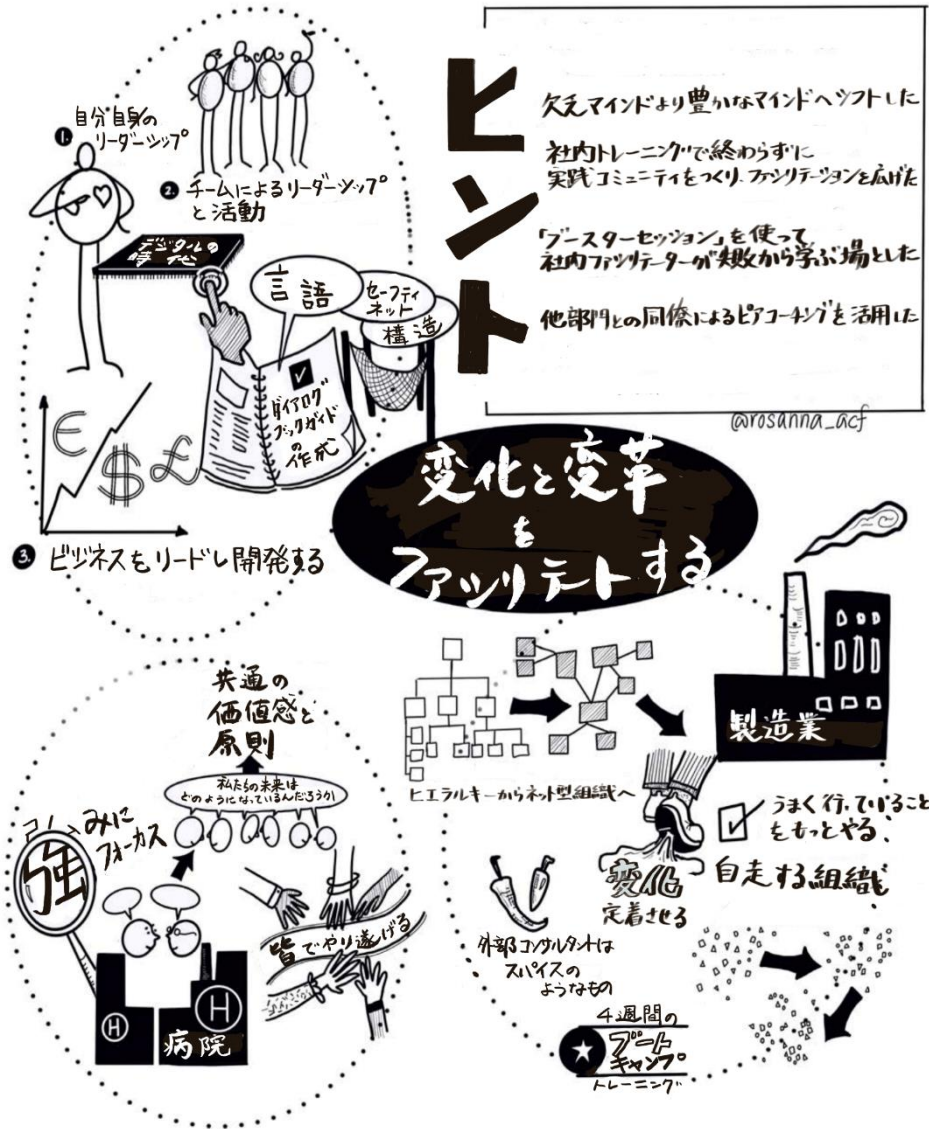 変化と変革
を
ファシリテートする
1. 自分自身の
リーダーシップ
2. チームによるリーダーシップ
と活動
デジタルの
時代
言語
セーフティ
ネット
構造
ダイアログ
ブックガイド
の
作成
€
$£
3. ビジネスをリードし開発する
ヒント
欠乏マインドより豊かなマインドへシフトした
社内トレーニングで終わらずに
実践コミュニティをつくり、ファシリテーションを広げた
「ブースターセッション」を使って
社内ファシリテーターが失敗から学ぶ場とした
他部門との同僚によるピアコーチングを活用した
@rosanna_acf
共通の
価値感と
原則
私たちの未来は
どのようになっているんだろうか
強みに
フォーカス
皆でやり遂げる
H
H
病院
製造業
ヒエラルキーからネット型組織へ
うまく行っていること
をもっとやる
変化
定着させる
自走する組織
外部コンサルタントは
スパイスの
ようなもの
4週間の
ブート
キャンプ
トレーニング